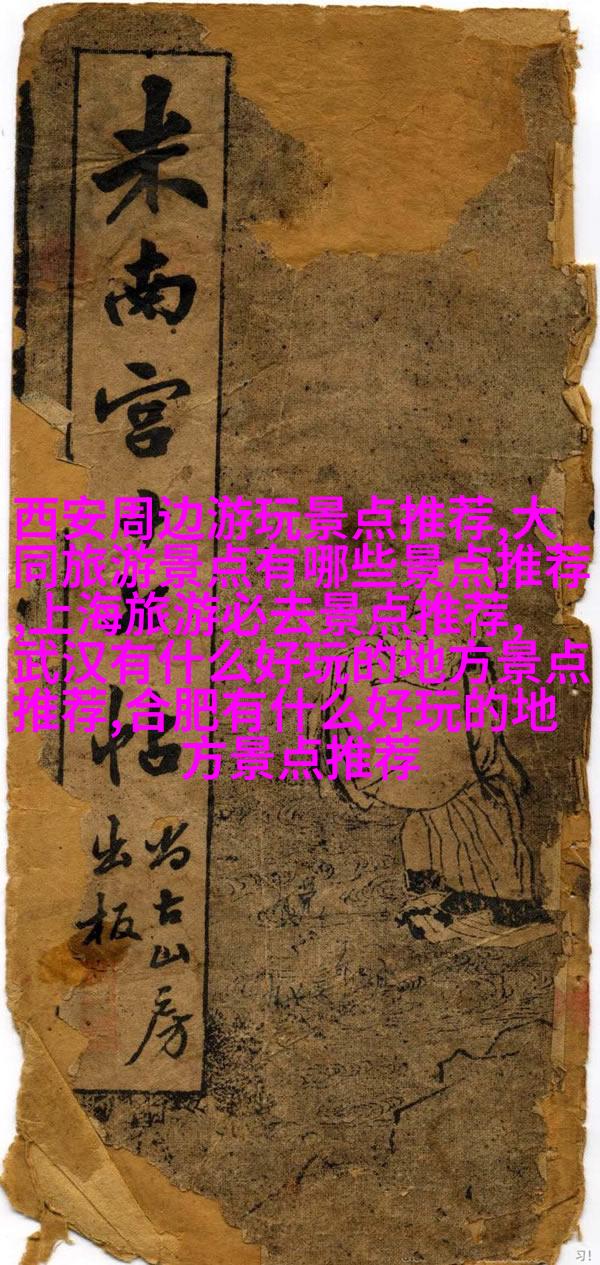 米南宮
帖
尚古山房
出板
西安周边游玩景点推荐,大
同旅游景点有哪些景点推荐
,上海旅游必去景点推荐,
武汉有什么好玩的地方景点
推荐,合肥有什么好玩的地
方景点推荐
习!